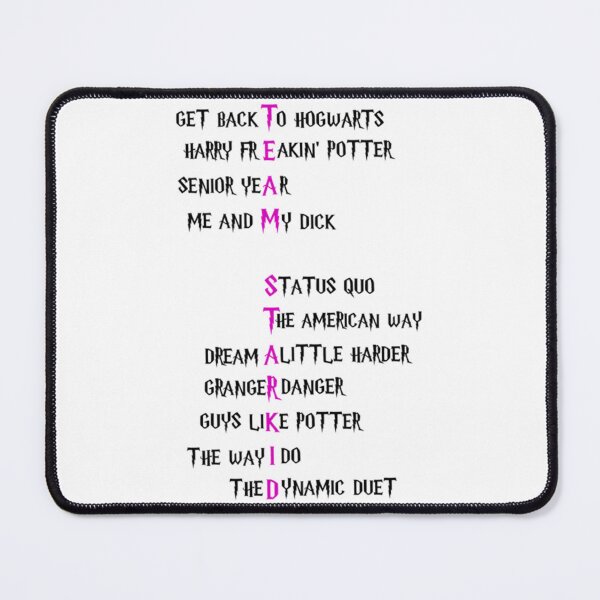 GET BACK TO HOGWARTS
HARRY FREAKIN' POTTER
SENIOR YEAR
ME AND MY DICK
STATUS QUO
THE AMERICAN WAY
DREAM A LITTLE HARDER
GRANGER DANGER
GUYS LIKE POTTER
THE WAY I DO
THE DYNAMIC DUET